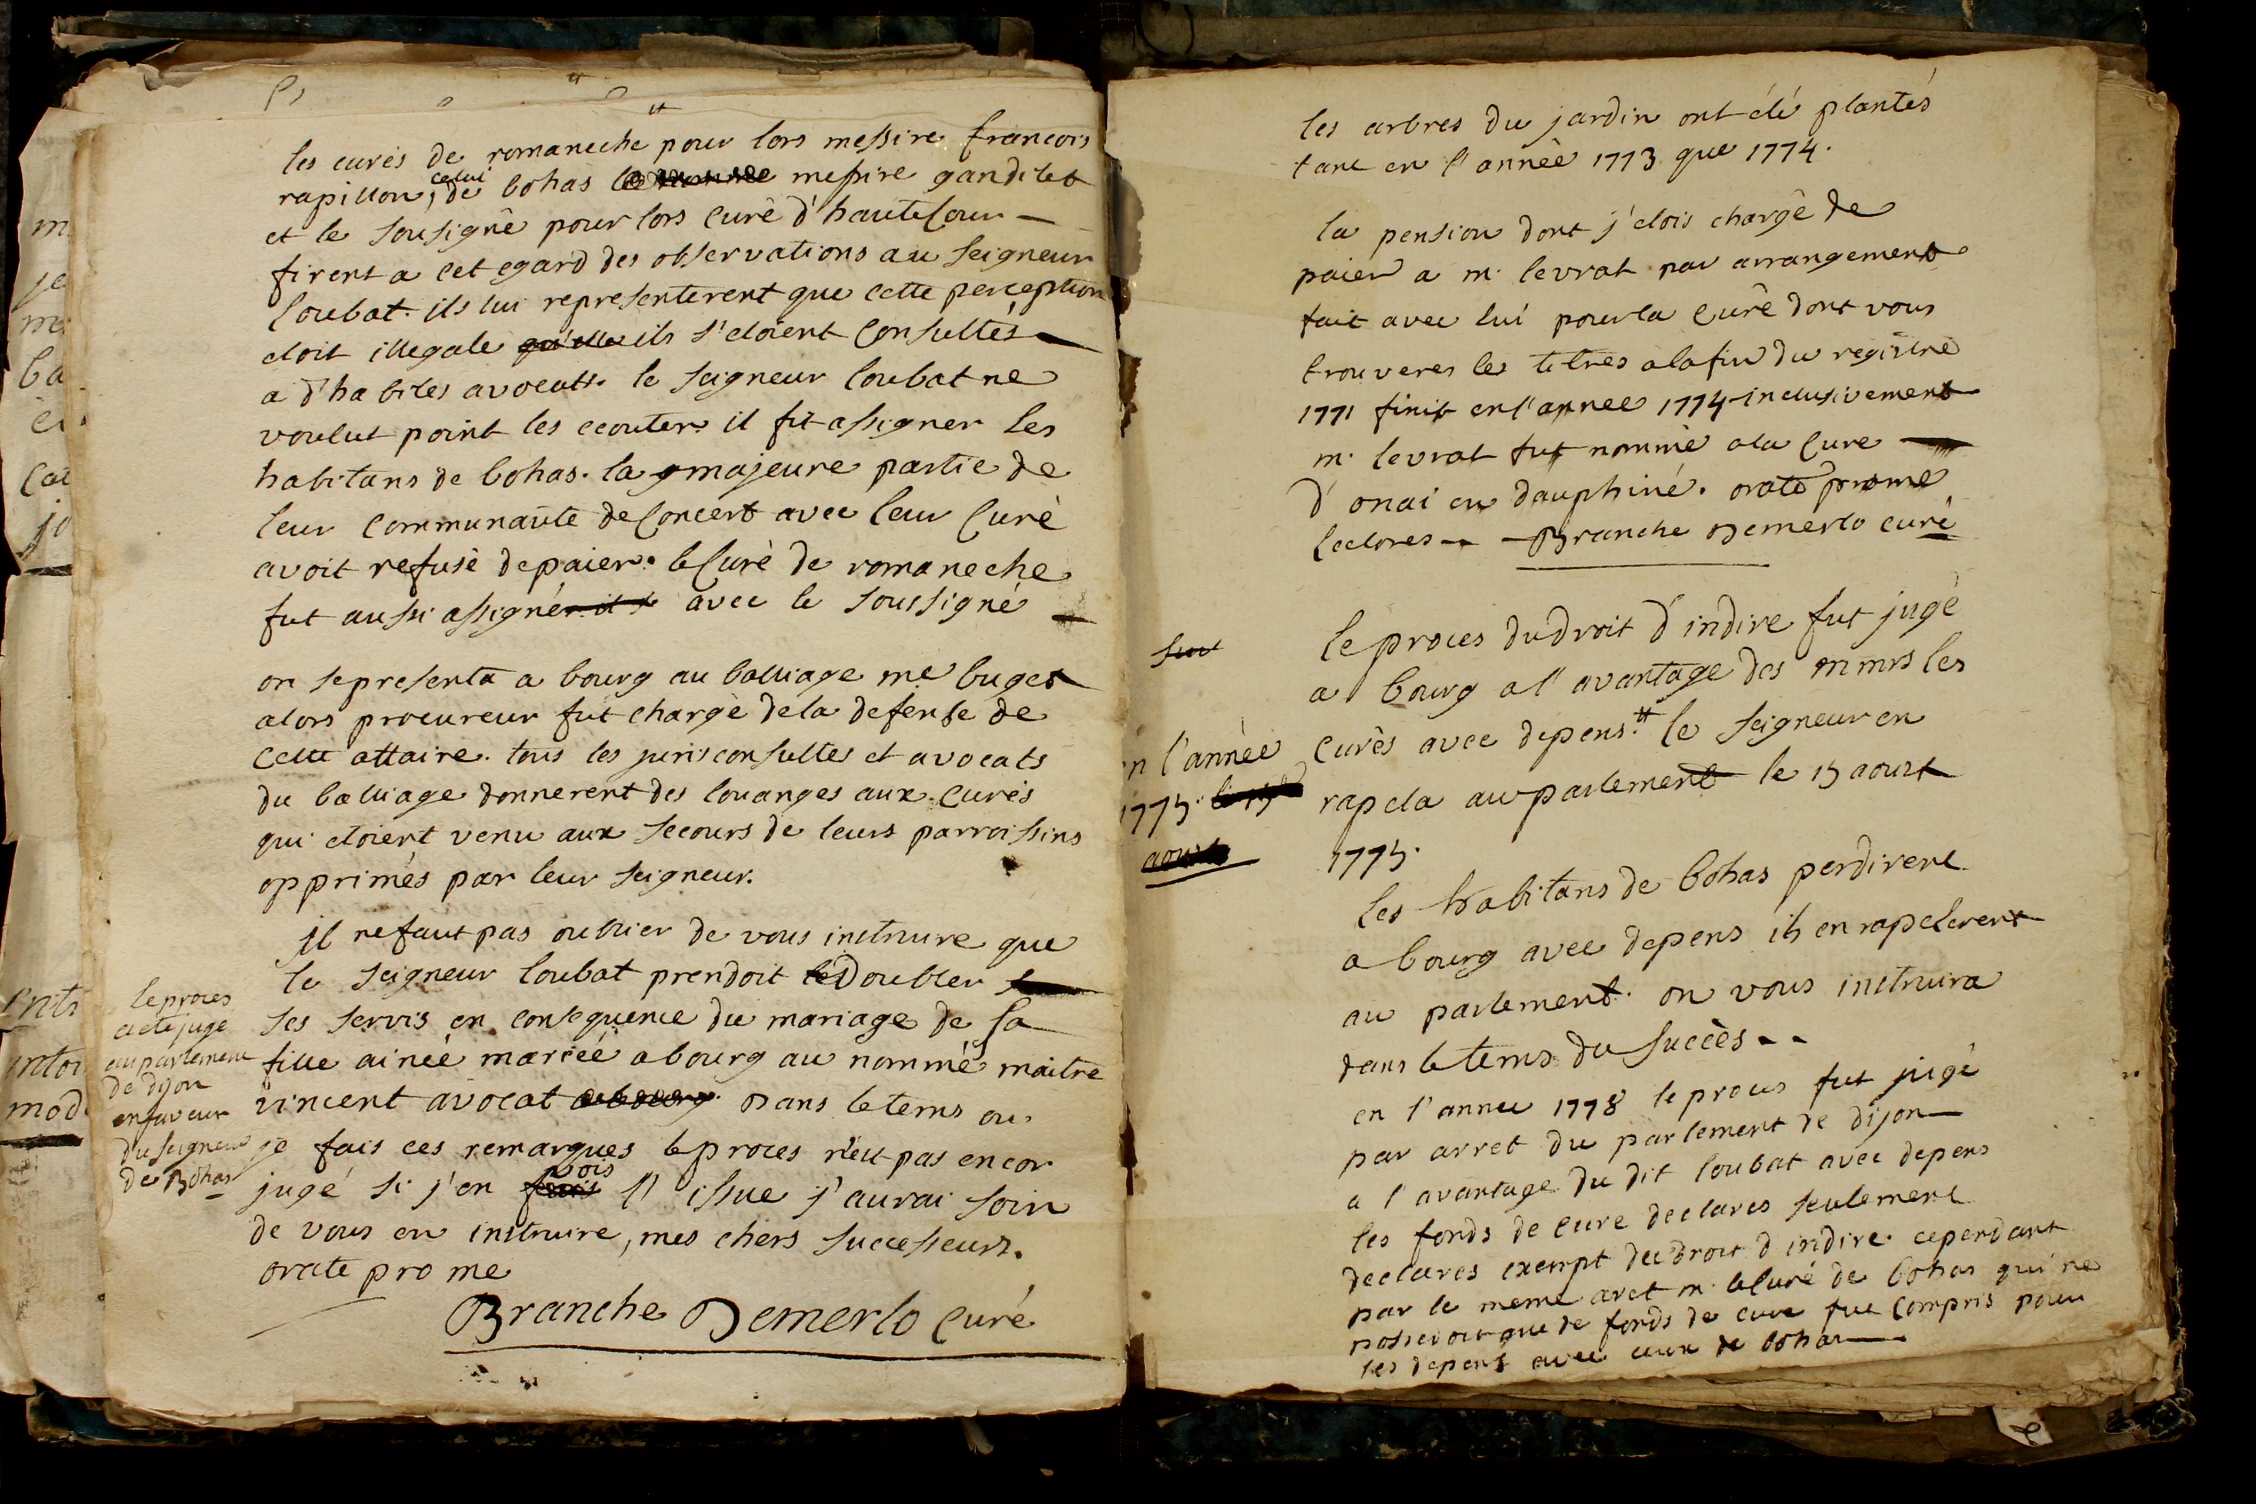 les curés de romaneche pour lors messire francois
rapillon, celui de bohas messire gandilet
et le sousigné pour lors curé d'hautecour
firent a cet egard des observations au seigneur
loubat. ils lui representerent que cette perception
etoit illegale qu'elle ils s'etoient consultés
a d'habiles avocats. le seigneur loubat ne
voulut point les ecouter. il fit assigner les
habitans de bohas. la majeure partie de
leur communauté de concert avec leur curé
avoit refusé de paier. le curé de romaneche
fut aussi assigné avec le soussigné
on se presenta a bourg au balliage me buget
alors procureur fut chargé de la defense de
cette affaire. tous les jurisconsultes et avocats
du balliage donnerent des louanges aux curés
qui etoient venu aux secours de leurs parroissins
opprimés par leur seigneur.
il ne faut pas oublier de vous instruire que
le seigneur loubat prendoit les doubler
ses servis en consequence du mariage de sa
fille ainéé mariéé a bourg au nommé maitre
vincent avocat a bourg. Dans le tems ou
je fais ces remarques le proces n'est pas encor
jugé si j'en vois l'issue j'aurai soin
de vous en instruire, mes chers successeurs.
orate pro me
Branche Demerlo curé
le proces
a eté jugé
au parlement
de dijon
en faveur
du seigneur
de Bohas
les arbres du jardin ont été plantés
tant en l'année 1773 que 1774.
la pension dont j'etois chargé de
paier a m. levrat par arrangement
fait avec lui pour la cure dont vous
trouveres les titres a la fin du registre
1771 finit en l'annee 1774 inclusivement
m. levrat fut nommé a la cure
d'onai en dauphiné. orate pro me
lectores Branche Demerlo curé
le proces du droit d'indire fut jugé
a bourg a l'avantage des mmrs les
curés avec depens. # le seigneur en
rapela au parlement le 15 aoust
1775.
en l'année
1775. le 15
aoust
les habitans de bohas perdirent
a bourg avec depens ils en rapelerent
au parlement. on vous instruira
dans le tems du succès
en l'annee 1778 le proces fut jugé
par arret du parlement de dijon
a l'avantage du dit loubat avec depens
les fonds de cure declares seulement
declares exempt du droit d'indire. cependant
par le meme aret m. le curé de bohas qui ne
possedoit que de fonds de cure fut compris pour
les depens avec ceux de bohas